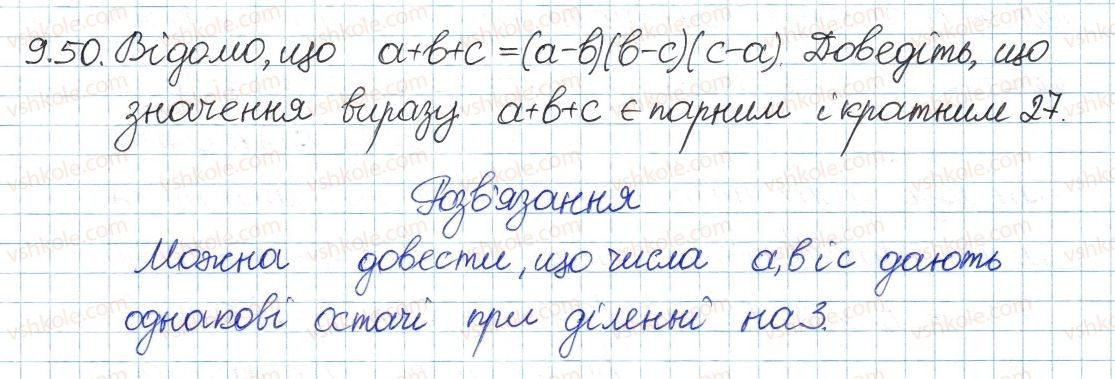 9.50. Відомо, що a+b+c=(a-b)(b-c)(c-a). Доведіть, що
значення виразу a+b+c є парним і кратним 27.
Розв'язання
Можна довести, що числа a, b і c дають
однакові остачі при діленні на 3.